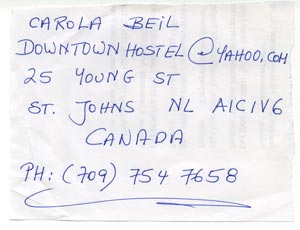 CAROLA BEIL
DOWNTOWNHOSTEL@YAHOO.COM
25 YOUNG ST
ST. JOHNS NL A1C1V6
CANADA
PH: (709) 754 7658